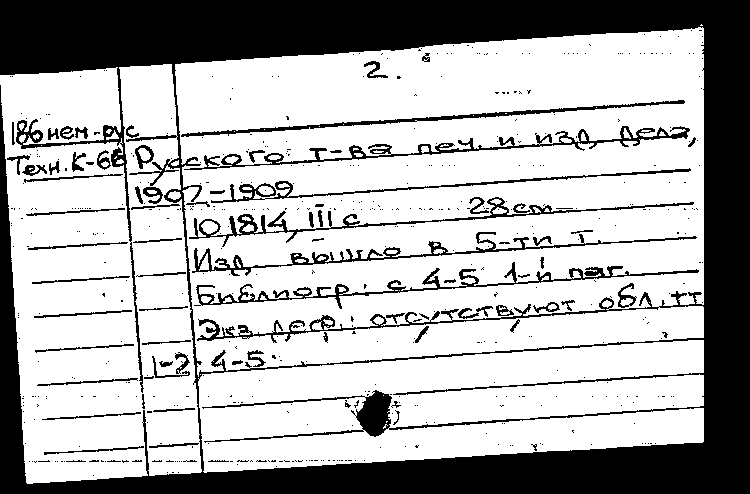 2.
186 нем.-рус
Техн. К-68 Русского т-ва печ. и изд. дела,
1907-1909
10, 1814, III с. 28 cm
Изд. вышло в 5-ти т.
Библиогр.: с. 4-5 1-й паг.
Экз. деф.: отсутствуют обл. тт
1-2; 4-5.